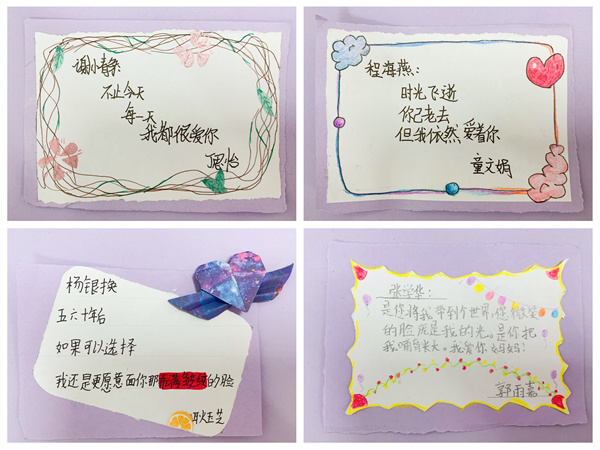 谢小静:
不止今天
每一天
我都很爱你
思怡
程海燕:
时光飞逝
你已老去
但我依然爱着你
童文娟
杨银换
五六十年后
如果可以选择
我还是更愿意面你那布满皱纹的脸
耿玉芝
张学华:
是您将我带到个世界,您微笑
的脸庞是我的光。是你把
我哺育长大。我爱你妈妈!
郭雨嘉